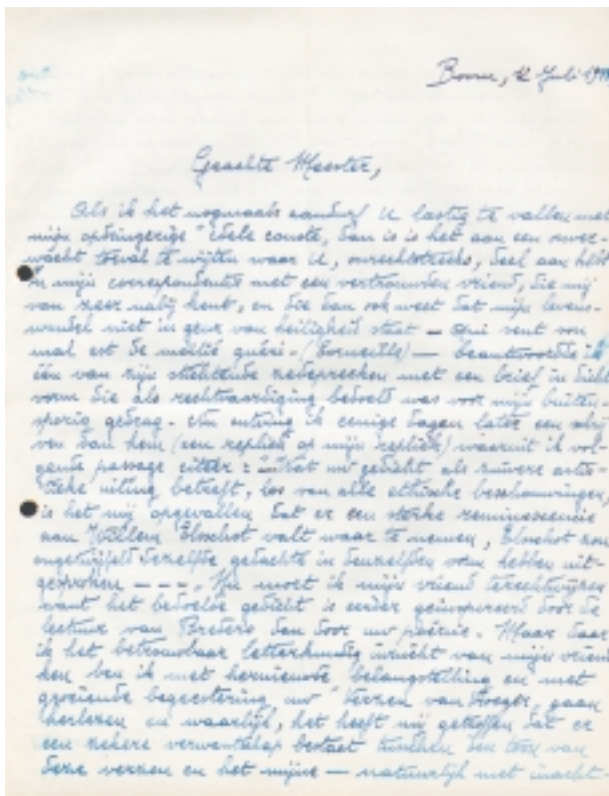 Boom, 12 Juli 19
Geachte Meester,
Als ik het nogmaals aandurf U lastig te vallen met
mijn opdringerige "edele conste, dan is is het aan een onver-
wacht toeval te wijten waar U, onrechtstreeks, deel aan hebt
In mijn correspondentie met een vertrouwden vriend, die mij
van zeer nabij kent, en die dan ook weet dat mijn levens-
wandel niet in geur van heiligheid staat - qui sent son
mal est de moitié guéri - (Corneille) — beantwoordde ik
één van zijn stichtende zedepreeken met een brief in dicht
vorm die als rechtvaardiging bedoeld was voor mijn buiten-
sporig gedrag. Nu ontving ik eenige dagen later een schrij
ven van hem (een repliek op mijn repliek) waaruit ik vol-
gende passage citeer: "Wat uw gedicht als zuivere artis-
tieke uiting betreft, los van alle ethische beschouwingen,
is het mij opgevallen dat er een sterke reminiscencie
aan Willem Elsschot valt waar te nemen, Elsschot zou
ongetwijfeld dezelfde gedachte in denzelfden vorm hebben uit-
gesproken - - - . Nu moet ik mijn vriend terechtwijzen
want het bedoelde gedicht is eerder geïnspireerd door de
lectuur van Bredero dan door uw poëzie. Maar daar
ik het betrouwbaar letterkundig inzicht van mijn vriend
ken ben ik met hernieuwde belangstelling en met
groeiende begeestering uw "Verzen van Vroeger, gaan
herlezen en waarlijk, het heeft mij getroffen dat er
een zekere verwantschap bestaat tusschen den toon van
deze verzen en het mijne — natuurlijk met inacht-